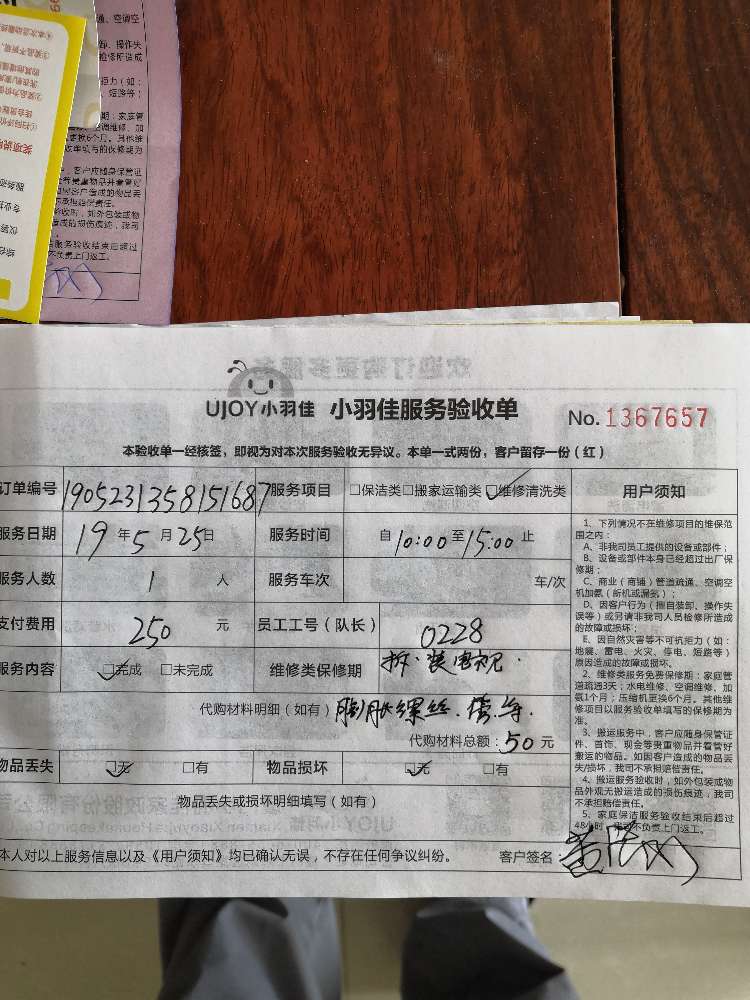 UJOY小羽佳 小羽佳服务验收单 No. 1367657
本验收单一经核签，即视为对本次服务验收无异议。本单一式两份，客户留存一份（红）
订单编号 1905231358151687 服务项目 □保洁类□搬家运输类☑维修清洗类
服务日期 19年5月25日 服务时间 自10:00至15:00止
服务人数 1 人 服务车次 车/次
支付费用 250 元 员工工号（队长） 0228
服务内容 ☑完成 □未完成 维修类保修期 拆·装电视.
代购材料明细（如有）膨胀螺丝.
代购材料总额：50元
物品丢失 ☑无 □有 物品损坏 ☑无 □有
物品丢失或损坏明细填写（如有）
本人对以上服务信息以及《用户须知》均已确认无误，不存在任何争议纠纷。 客户签名：
用户须知
1、下列情况不在维修项目的维保范
围之内：
A、非我司员工提供的设备或部件；
B、设备或部件本身已经超过出厂保
修期；
C、商业（商铺）管道疏通、空调空
机加氨（新机或漏氨）；
D、因客户行为（擅自装卸、操作失
误等）或另请非我司人员检修所造成
的故障或损坏；
E、因自然灾害等不可抗拒力（如：
地震、雷电、火灾、停电、短路等）
原因造成的故障或损坏。
2、维修类服务免费保修期：家庭管
道疏通3天；水电维修、空调维修、加
氨1个月；压缩机更换6个月。其他维
修项目以服务验收单填写的保修期为
准。
3、搬运服务中，客户应随身保管证
件、首饰、现金等贵重物品并看管好
搬运的物品。如因客户造成的物品丢
失/损坏，我司不承担赔偿责任。
4、搬运服务验收时，如外包装或物
品外观无搬运造成的损伤痕迹，我司
不承担赔偿责任。
5、家庭保洁服务验收结束后超过
48小时，不负责上门返工。